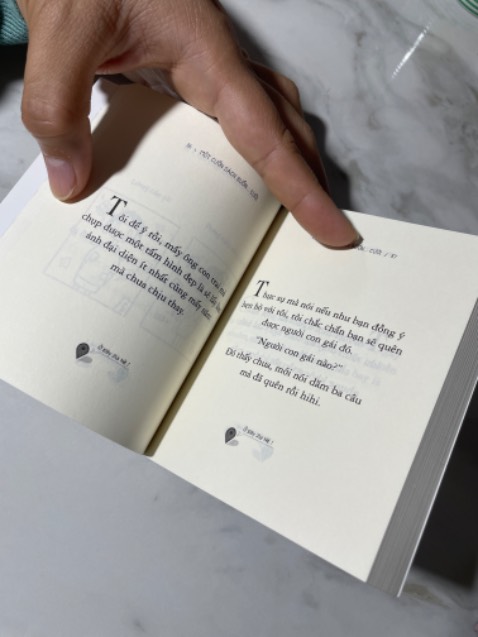 MỘT CUỐN SÁCH BUỒN... CƯỜI
Tôi để ý rồi, mấy ông con trai mà
chụp được một tấm hình đẹp là sẽ lấy làm
ảnh đại diện ít nhất cũng mấy năm
mà chưa chịu thay.
Ở đâu zui thế !
CƯỜI /
Thực sự mà nói nếu như bạn đồng ý
hẹn hò với tôi, tôi chắc chắn bạn sẽ quên
được người con gái đó.
"Người con gái nào?"
Đó thấy chưa, mới nói dăm ba câu
mà đã quên rồi hihi.
Ở đâu zui thế !